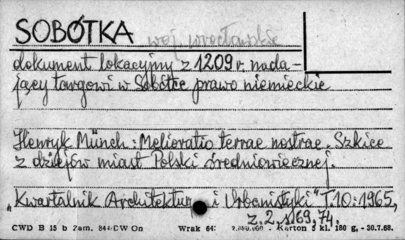 SOBÓTKA woj. wrocławskie
dokument lokacyjny z 1209 r. nada-
jący targowi w Sobótce prawo niemieckie
Henryk Münch: Melioratio terrae nostrae. Szkice
z dziejów miast Polski średniowiecznej.
"Kwartalnik Architektury i Urbanistyki" T.10:1965,
z. 2, s. 69, 74.
CWD B 15 b Zam. 844/CW On Wrak 64: Karton 5 kl. 180 g, - 30.7.68.